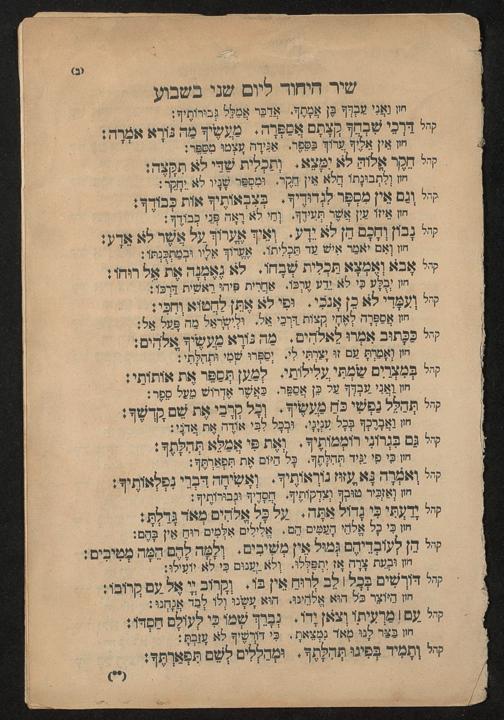 (ב)
שיר היחוד ליום שני בשבוע
חזן וַאֲנִי עַבְדְּךָ בֶּן אֲמָתֶךָ. אֲדַבֵּר אֲמַלֵּל גְּבוּרוֹתֶיךָ:
קהל דַּרְכֵי שְׁבָחֲךָ קְצָתָם אֲסַפְּרָה. מַעֲשֶׂיךָ מַה נּוֹרָא אֹמְרָה:
חזן אֵין אֵלֶיךָ עֲרוֹךְ בַּסֵּפֶר. אַגִּידָה עָצְמוּ מִסַּפֵּר:
קהל חֵקֶר אֱלוֹהַּ לֹא יִמָּצֵא. וְתַכְלִית שַׁדַּי לֹא תִקָּצֶה:
חזן וְלִתְבוּנָתוֹ הֲלֹא אֵין חֵקֶר. וּמִסְפַּר שָׁנָיו לֹא יֵחָקֵר:
קהל וְגַם אֵין מִסְפָּר לִגְדוּדֶיךָ. בְּצִבְאוֹתֶיךָ אוֹת כְּבוֹדֶךָ:
חזן אֵיזוֹ עַיִן אֲשֶׁר תְּעִידֶךָ. וְחַי לֹא רָאָה פְּנֵי כְבוֹדֶךָ:
קהל נָבוֹן וְחָכָם הֵן לֹא יֵדַע. וְאֵיךְ אֶעֱרוֹךְ עַל אֲשֶׁר לֹא אֵדָע:
חזן וְאִם יֹאמַר אִישׁ עַד תַּכְלִיתוֹ. אֶעֱרוֹךְ אֵלָיו וּבְמַתְכֻּנְתּוֹ:
קהל אָבֹא וְאֶמְצָא תַּכְלִית שִׁבְחוֹ. לֹא נֶאֶמְנָה אֶת אֵל רוּחוֹ:
חזן יְבֻלַּע כִּי לֹא יֵדַע עֶרְכּוֹ. אַחֲרִית פִּיהוּ רֵאשִׁית דַּרְכּוֹ:
קהל וְעִמָּדִי לֹא כֵן אָנֹכִי. וּפִי לֹא אֶתֵּן לַחֲטוֹא וְחִכִּי:
חזן אֲסַפְּרָה לְאֶחָי קְצוֹת דַּרְכֵי אֵל. וּלְיִשְׂרָאֵל מַה פָּעַל אֵל:
קהל כַּכָּתוּב אִמְרוּ לֵאלֹהִים. מַה נּוֹרָא מַעֲשֶׂיךָ אֱלֹהִים:
חזן וְאָמַרְתָּ עַם זוּ יָצַרְתִּי לִי. יְסַפְּרוּ שְׁמִי וּתְהִלָּתִי:
קהל בְּמִצְרַיִם שַׂמְתִּי עֲלִילוֹתַי. לְמַעַן תְּסַפֵּר אֶת אוֹתוֹתַי:
חזן וַאֲנִי עַבְדְּךָ עַל כֵּן אֲסַפֵּר. כַּאֲשֶׁר אֶדְרוֹשׁ מֵעַל סֵפֶר:
קהל תְּהַלֵּל נַפְשִׁי כֹּחַ מַעֲשֶׂיךָ. וְכָל קְרָבַי אֶת שֵׁם קָדְשֶׁךָ:
חזן וַאֲבָרֶכְךָ בְּכָל עִנְיָנַי. וּבְכָל לִבִּי אוֹדֶה אֶת אֲדֹנָי:
קהל גַּם בִּגְרוֹנִי רוֹמְמוֹתֶיךָ. וְאֶת פִּי אֲמַלֵּא תְהִלָּתֶךָ:
חזן כִּי פִי יַגִּיד תְּהִלָּתֶךָ. כָּל הַיּוֹם אֶת תִּפְאַרְתֶּךָ:
קהל וְאֹמְרָה נָּא עֱזוּז נוֹרְאוֹתֶיךָ. וְאָשִׂיחָה דִּבְרֵי נִפְלְאוֹתֶיךָ:
חזן וְאַזְכִּיר טוּבְךָ וְצִדְקוֹתֶיךָ. חֲסָדֶיךָ וּגְבוּרוֹתֶיךָ:
קהל יָדַעְתִּי כִּי גָדוֹל אַתָּה. עַל כָּל אֱלֹהִים מְאֹד גָּדַלְתָּ:
חזן כִּי כָל אֱלֹהֵי הָעַמִּים הֵם. אֱלִילִים אִלְּמִים רוּחַ אֵין בָּהֶם:
קהל הֵן לְעוֹבְדֵיהֶם גְּמוּל אֵין מְשִׁיבִים. וְלָמָּה לָהֶם הֵמָּה מְטִיבִים:
חזן וּבְעֵת צָרָה אָז יִתְפַּלְלוּ. וְלֹא יַעֲנוּם כִּי לֹא יוֹעִילוּ:
קהל דּוֹרְשִׁים בְּכָל | לֵב לְרוּחַ אֵין בּוֹ. וְקָרוֹב יְיָ אֶל עַם קְרוֹבוֹ:
חזן הַיּוֹצֵר כֹּל הוּא אֱלֹהֵינוּ. הוּא עָשָׂנוּ וְלוֹ לְבַד אֲנָחְנוּ:
קהל עַם | מַרְעִיתוֹ וְצֹאן יָדוֹ. נְבָרֵךְ שְׁמוֹ כִּי לְעוֹלָם חַסְדּוֹ:
חזן בַּצַּר לָנוּ מְאֹד נִמְצֵאתָ. כִּי דוֹרְשֶׁיךָ לֹא עָזָבְתָּ:
קהל וְתָמִיד בְּפִינוּ תְּהִלָּתֶךָ. וּמְהַלְלִים לְשֵׁם תִּפְאַרְתֶּךָ: